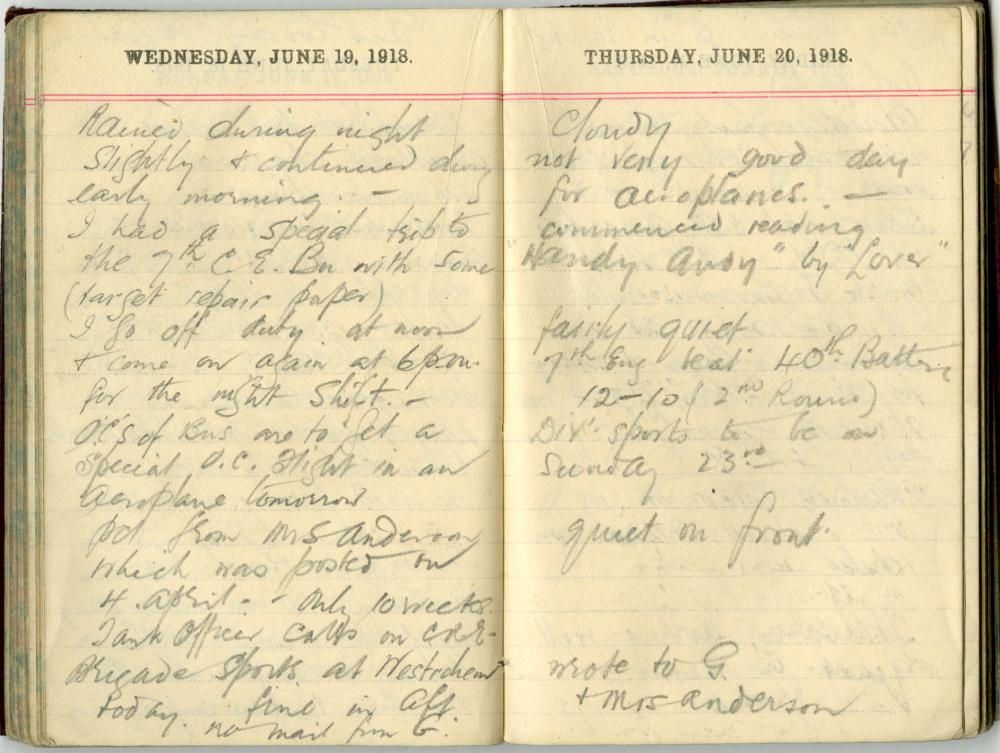 WEDNESDAY, JUNE 19, 1918.
Rained during night
slightly & continued during
early morning. —
I had a special trip to
the 7th C.E. Bn with some
(target repair paper)
I go off duty at noon
& come on again at 6 pm.
for the night shift. —
O.C's of Bns are to get a
special O.C. flight in an
Aeroplane tomorrow
pd from Mrs Anderson
which was posted on
4. April - - only 10 weeks.
Tank Officer calls on C.R.E.
Brigade sports at
today. fine in Aft.
no mail from G.
THURSDAY, JUNE 20, 1918.
Cloudy
not very good day
for aeroplanes. —
commenced reading
"Handy Andy" by "Lover"
fairly quiet
7th Eng beat 40th Battery
12-10 (2nd Round)
Div. sports to be on
Sunday 23rd
quiet on front.
wrote to G.
& Mrs Anderson